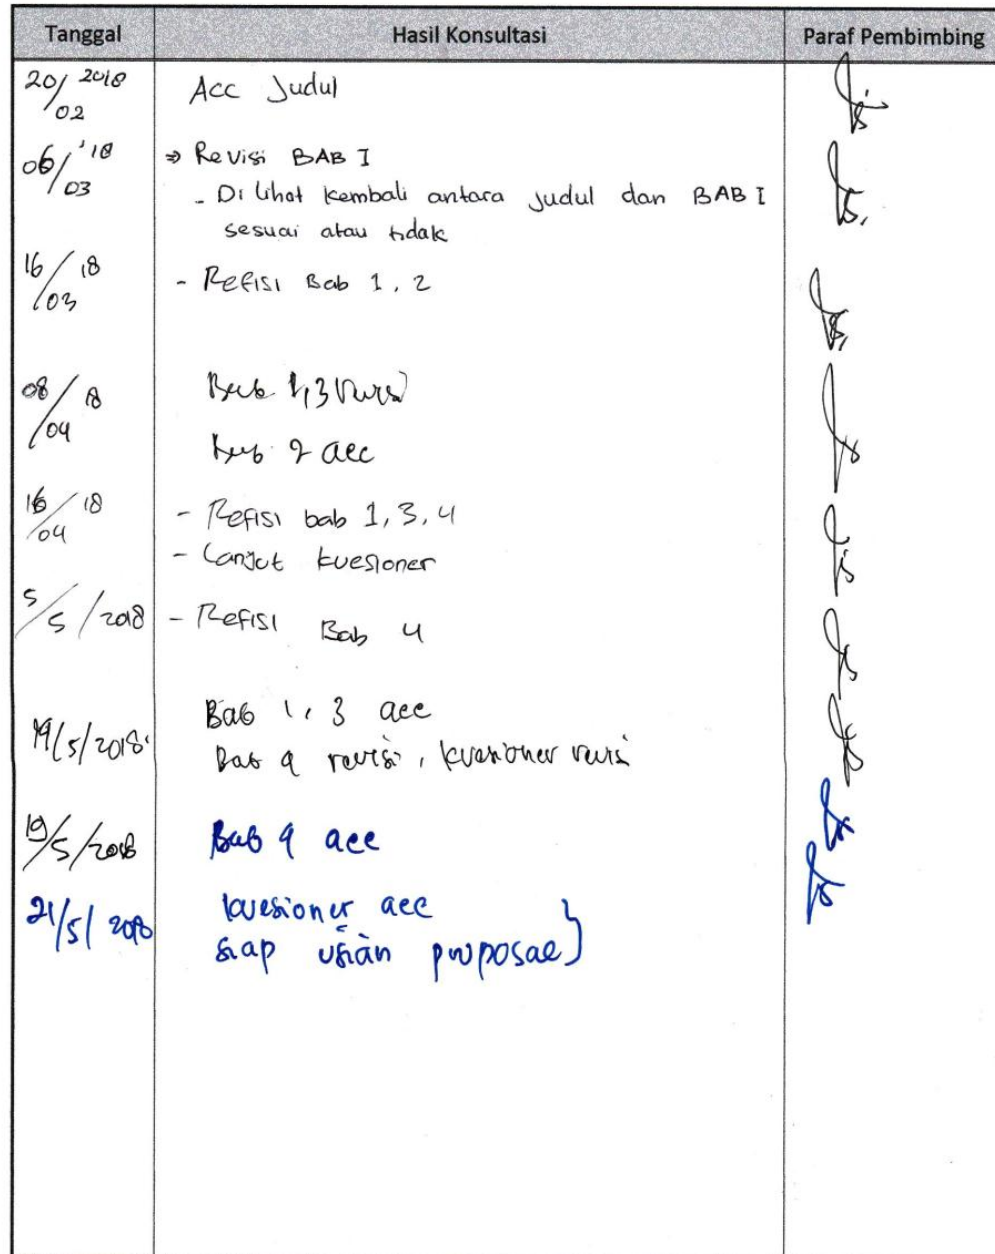 Tanggal Hasil Konsultasi Paraf Pembimbing
20/02 2018 Acc Judul
06/03 '18 ⇒ Revisi BAB I
- Di lihat kembali antara judul dan BAB I
sesuai atau tidak
16/03 18 - Refisi Bab 1, 2
08/04 18 Bab 1,3
Bab 2 acc
16/04 18 - Refisi bab 1, 3, 4
- Lanjut kuesioner
5/5/2018 - Refisi Bab 4
/5/2018 Bab 1, 3 acc
Bab 4 revisi, kuesioner revisi
19/5/2018 Bab 4 acc
21/5/2018 kuesioner acc
siap ujian proposal }